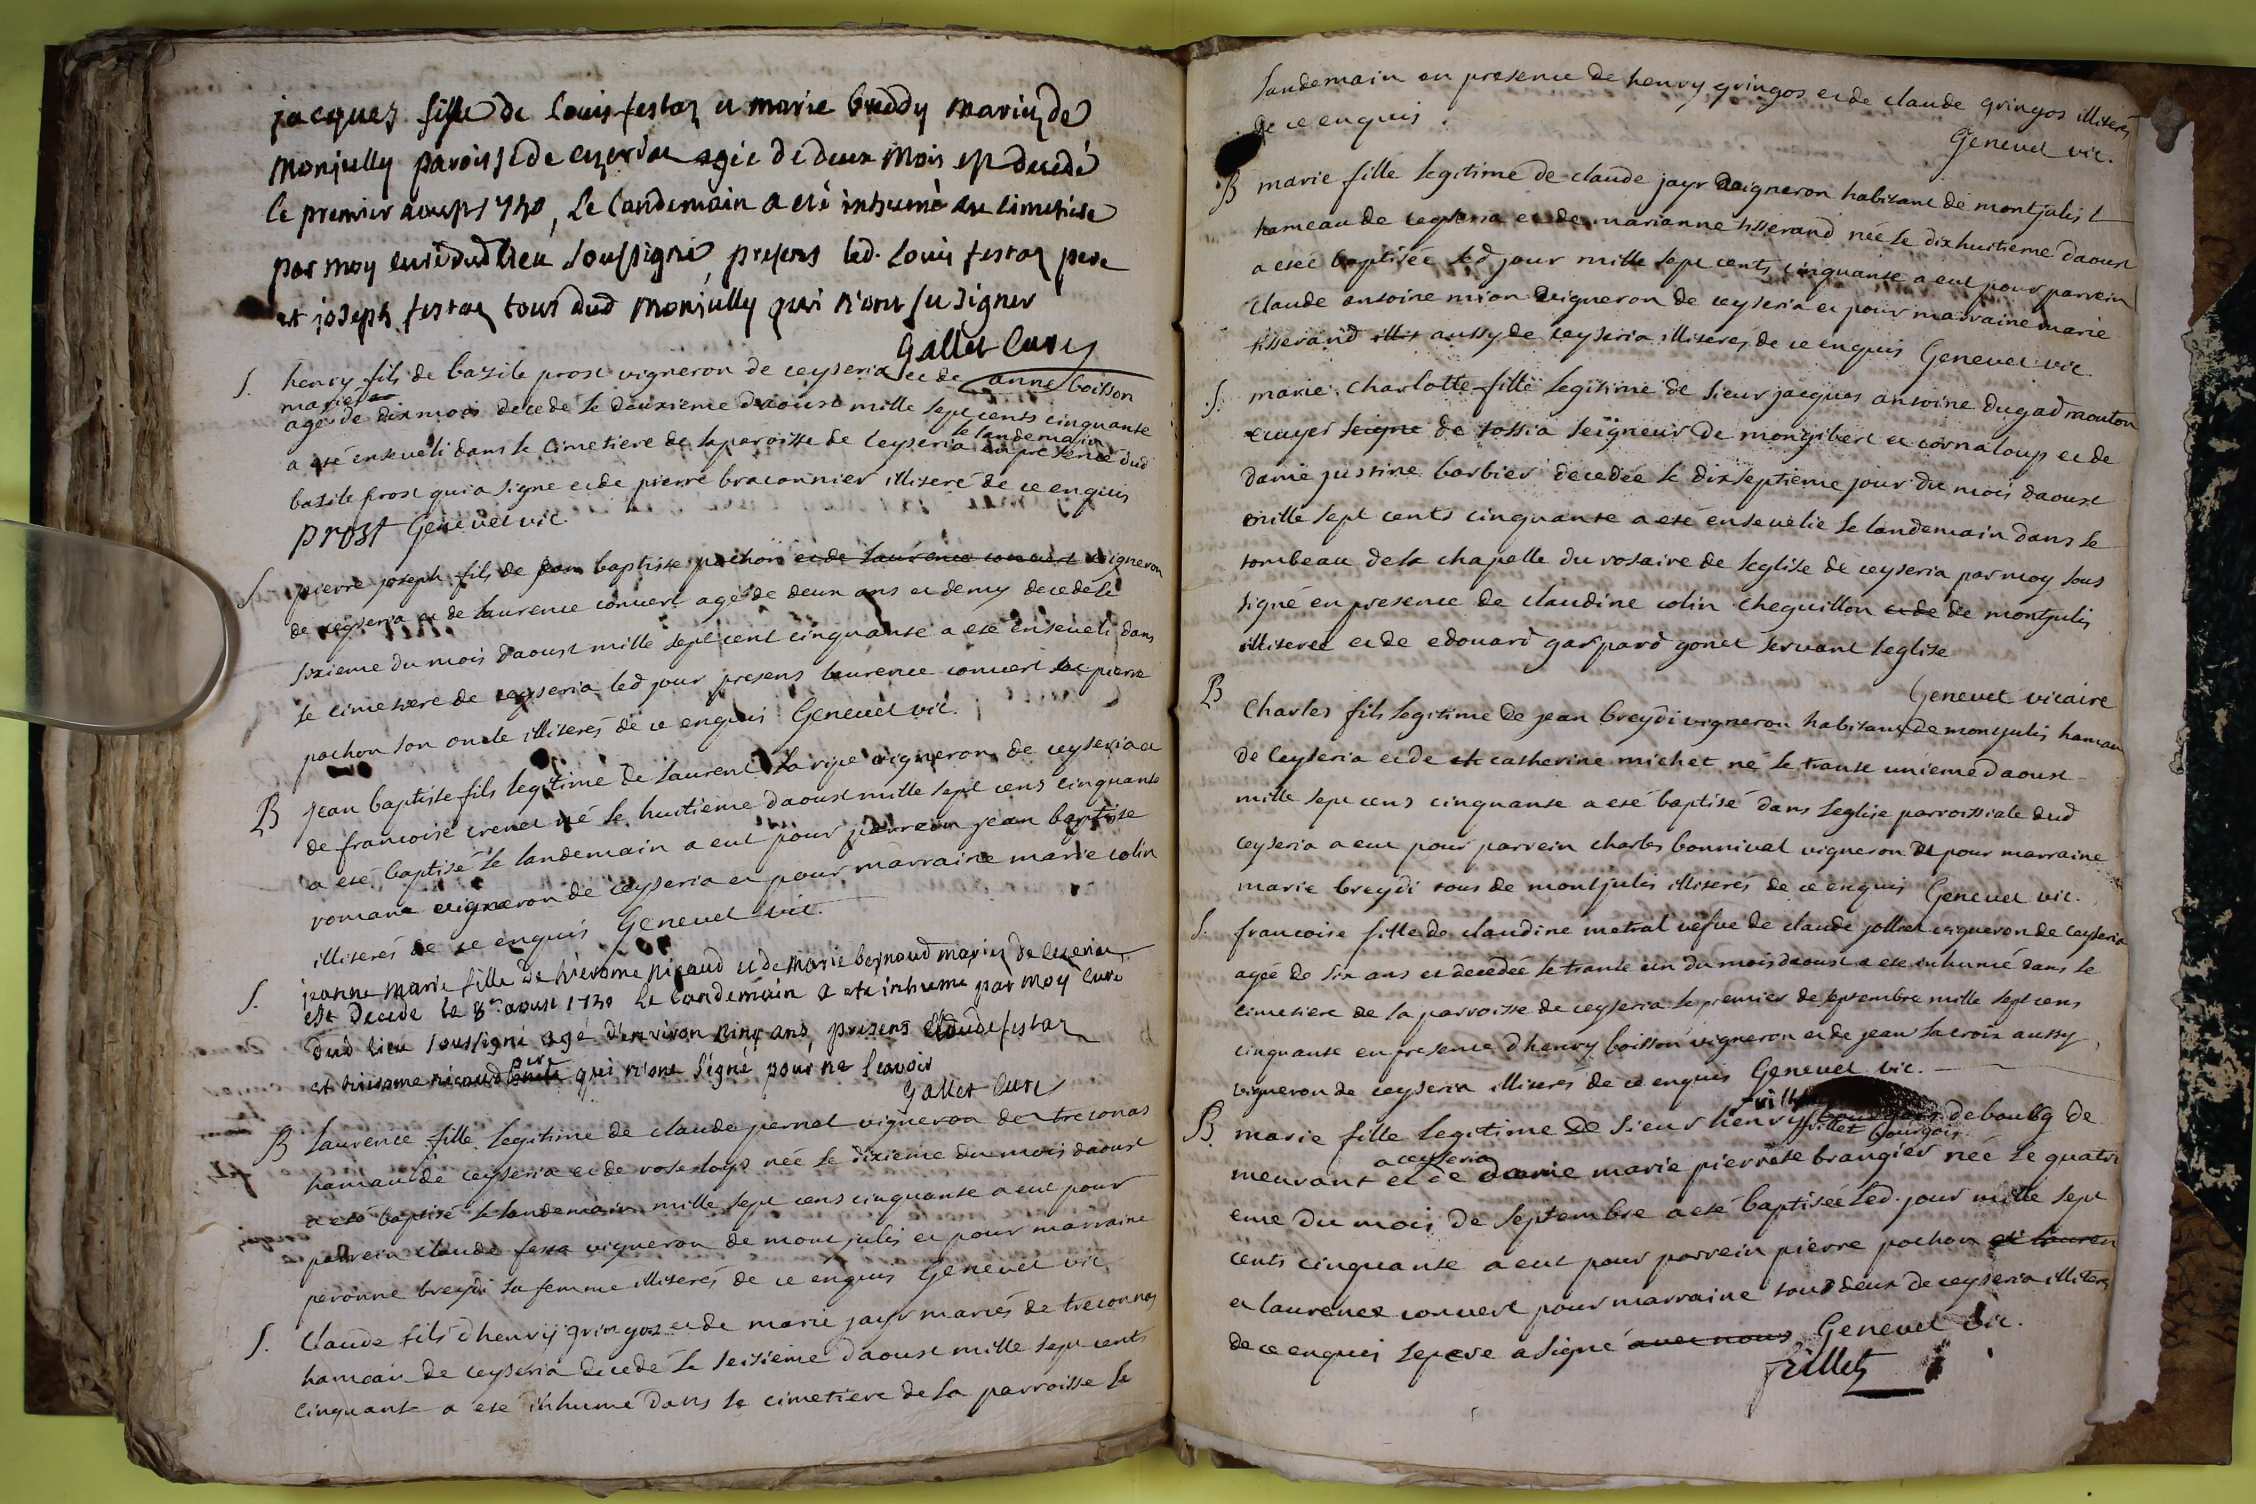 jacques fille de Louis festaz et marie breddy mariez de
Monjully paroisse de ceyeriat agée de deux Mois est decedé
le premier aoust 1750, Le Landemain a eté inhumé au cimetiere
par moy curé dud Lieu soussigné, presens led. Louis festaz pere
et joseph festaz tous dud Monjully qui n'ont su signer
Gallet Curé
S. henry fils de bazile prost vigneron de ceyseria et de anne boisson
mariez
agé de dix mois decede le deuxieme daoust mille sept cents cinquante
le landemain
a eté enseveli dans le Cimetiere de la paroisse de Ceyseria en presence dud
bazile prost qui a signe et de pierre braconnier illiteré de ce enquis
prost Genevet vic.
S pierre joseph fils de jean baptiste pochon et de laurence convert vigneron
de ceyseria et de laurence convert agé de deux ans et demy decedé le
sixieme du mois daoust mille sept cent cinquante a eté enseveli dans
le cimetiere de ceyseria led jour presens laurence convert et pierre
pochon son oncle illiterés de ce enquis Genevet vic.
B jean baptiste fils legitime de laurent La ripe vigneron de ceyseria et
de francoise crenet né le huitieme daoust mille sept cens cinquante
a eté baptisé le landemain a eut pour parrein jean baptiste
romane vigneron de ceyseria et pour marraine marie colin
illiterés de ce enquis Genevet vic.
S. jeanne marie fille de hierome nicaud et de marie bernoud mariez de ceyseria
est decede le 8me aoust 1750 Le Landemain a ete inhume par moy Curé
dud lieu soussigné agé d'environ cinq ans, presens Claude festaz
pere
et hierome nicaud qui n'ont signé pour ne Scavoir
Gallet Curé
B Laurence fille legitime de claude pernet vigneron de treconas
hamau de ceyseria et de rose loys née le dixieme du mois daoust
a eté baptisé le landemain mille sept cens cinquante a eut pour
parrein claude festa vigneron de mont julis et pour marraine
peronne breydi sa femme illiterés de ce enquis Genevet vic
S. Claude fils d henrij gringoz et de marie jayr mariés de treconnas
hameau de ceyseria decedé le seisieme daoust mille sept cents
cinquante a eté inhumé dans le cimetiere de la parroisse le
landemain en presence de henry gringos et de claude gringos illiterés
de ce enquis.
Genevet vic.
B marie fille legitime de claude jayr vigneron habitant de montjulis
hameau de ceyseria et de marianne tisserand née le dixhuitieme daoust
a eteé baptisée led jour mille sept cents cinquante a eut pour parrein
Claude antoine mion vigneron de ceyseria et pour marraine marie
tisserand illit aussy de ceyseria illiterés de ce enquis Genevet vic
S. marie charlotte fille legitime de sieur jacques antoine dugad mouton
ecuyer seigne de tossia seigneur de mongibert et cornaloup et de
dame justine barbier decedée le dixseptieme jour du mois daoust
mille sept cents cinquante a eté ensevelie le landemain dans le
tombeau de la chapelle du rosaire de leglise de ceyseria par moy sous
signé en presence de claudine colin chequillon et de de montjulis
illiteree et de edouard gaspard gonet servant leglise
Genevet vicaire
B Charles fils legitime de jean breydi vigneron habitant de montjulis hamau
de Ceyseria et de et catherine michet né le trante unieme daoust
mille sept cens cinquante a eté baptisé dans leglise parroissiale dud
ceyseria a eut pour parrein charles bonnival vigneron et pour marraine
marie breydi tous de montjulis illiterés de ce enquis Genevet vic.
S. francoise fille de claudine metral vefve de claude jollret vigneron de Ceyseria
agée de six ans et decedeé le trante un du mois daoust a eté inhumé dans le
cimetiere de la parroisse de ceyseria le premier de septembre mille sept cens
cinquante en presence d henry boisson vigneron et de jean la croix aussy
vigneron de ceyseria illiterés de ce enquis Genevet vic.
B. marie fille legitime de sieur henry frillet bourgois de boulg de
a ceyseria
meurant et de dame marie pierrete brangier née le quatri
eme du mois de septembre a eté baptisée led. jour mille sept
cents cinquante a eut pour parrein pierre pochon et lauren
et laurence convert pour marraine tous deux de ceyseria illiterés
de ce enquis le pere a signé avec nous Genevet vic.
frillet